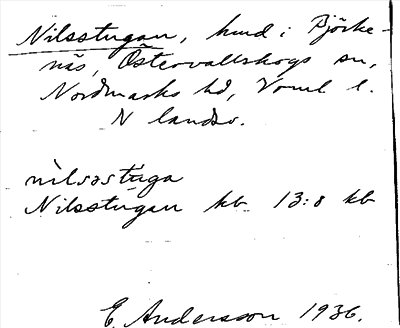 Nilsstugan, hmd i Björke-
näs, Östervallskogs sn,
Nordmarks hd, Värml. l.
N landsv.
nìlsəstúga
Nilsstugan kb 13:8 kb
E. Andersson 1936.